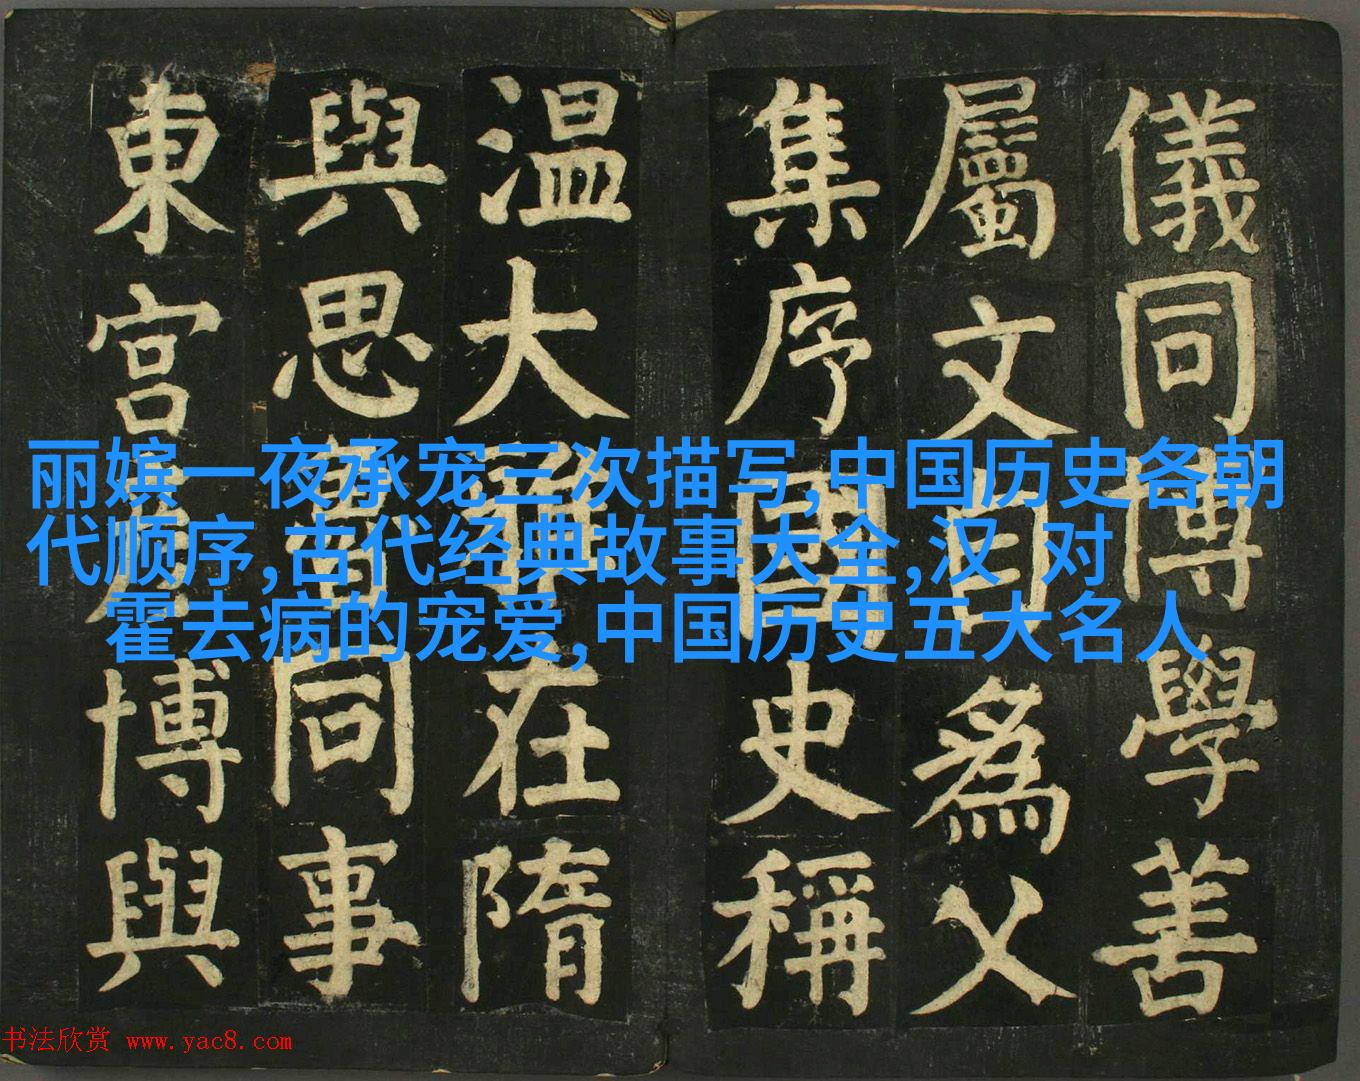 儀同博學善
屬文自為父
集序國史稱
温大雅在隋
與思魯同事
東宫彦博與
丽嫔一夜承宠三次描写,中国历史各朝
代顺序,古代经典故事大全,汉 对
霍去病的宠爱,中国历史五大名人
书法欣赏 www.yac8.com